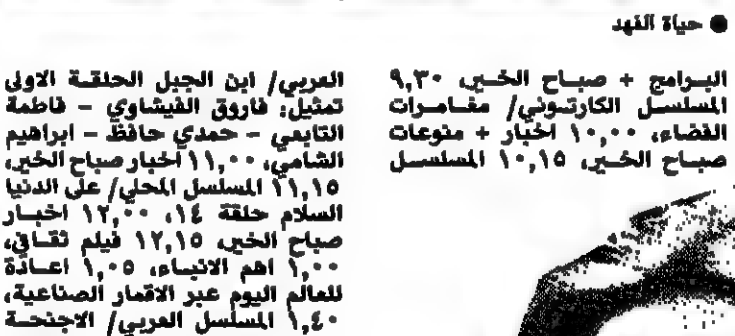 ● حياة الفهد
البرامج + صباح الخير، ٩,٣٠
المسلسل الكارتوني/ مغامرات
الفضاء، ١٠,٠٠ اخبار + منوعات
صباح الخير، ١٠,١٥ المسلسل
العربي/ ابن الجبل الحلقة الاولى
تمثيل: فاروق الفيشاوي - فاطمة
التابعي - حمدي حافظ - ابراهيم
الشامي، ١١,٠٠ اخبار صباح الخير،
١١,١٥ المسلسل المحلي/ على الدنيا
السلام حلقة ١٤، ١٢,٠٠ اخبار
صباح الخير، ١٢,١٥ فيلم ثقافي،
١,٠٠ اهم الانباء، ١,٠٥ اعادة
للعالم اليوم عبر الاقمار الصناعية،
١,٤٠ المسلسل العربي/ الاجنحة